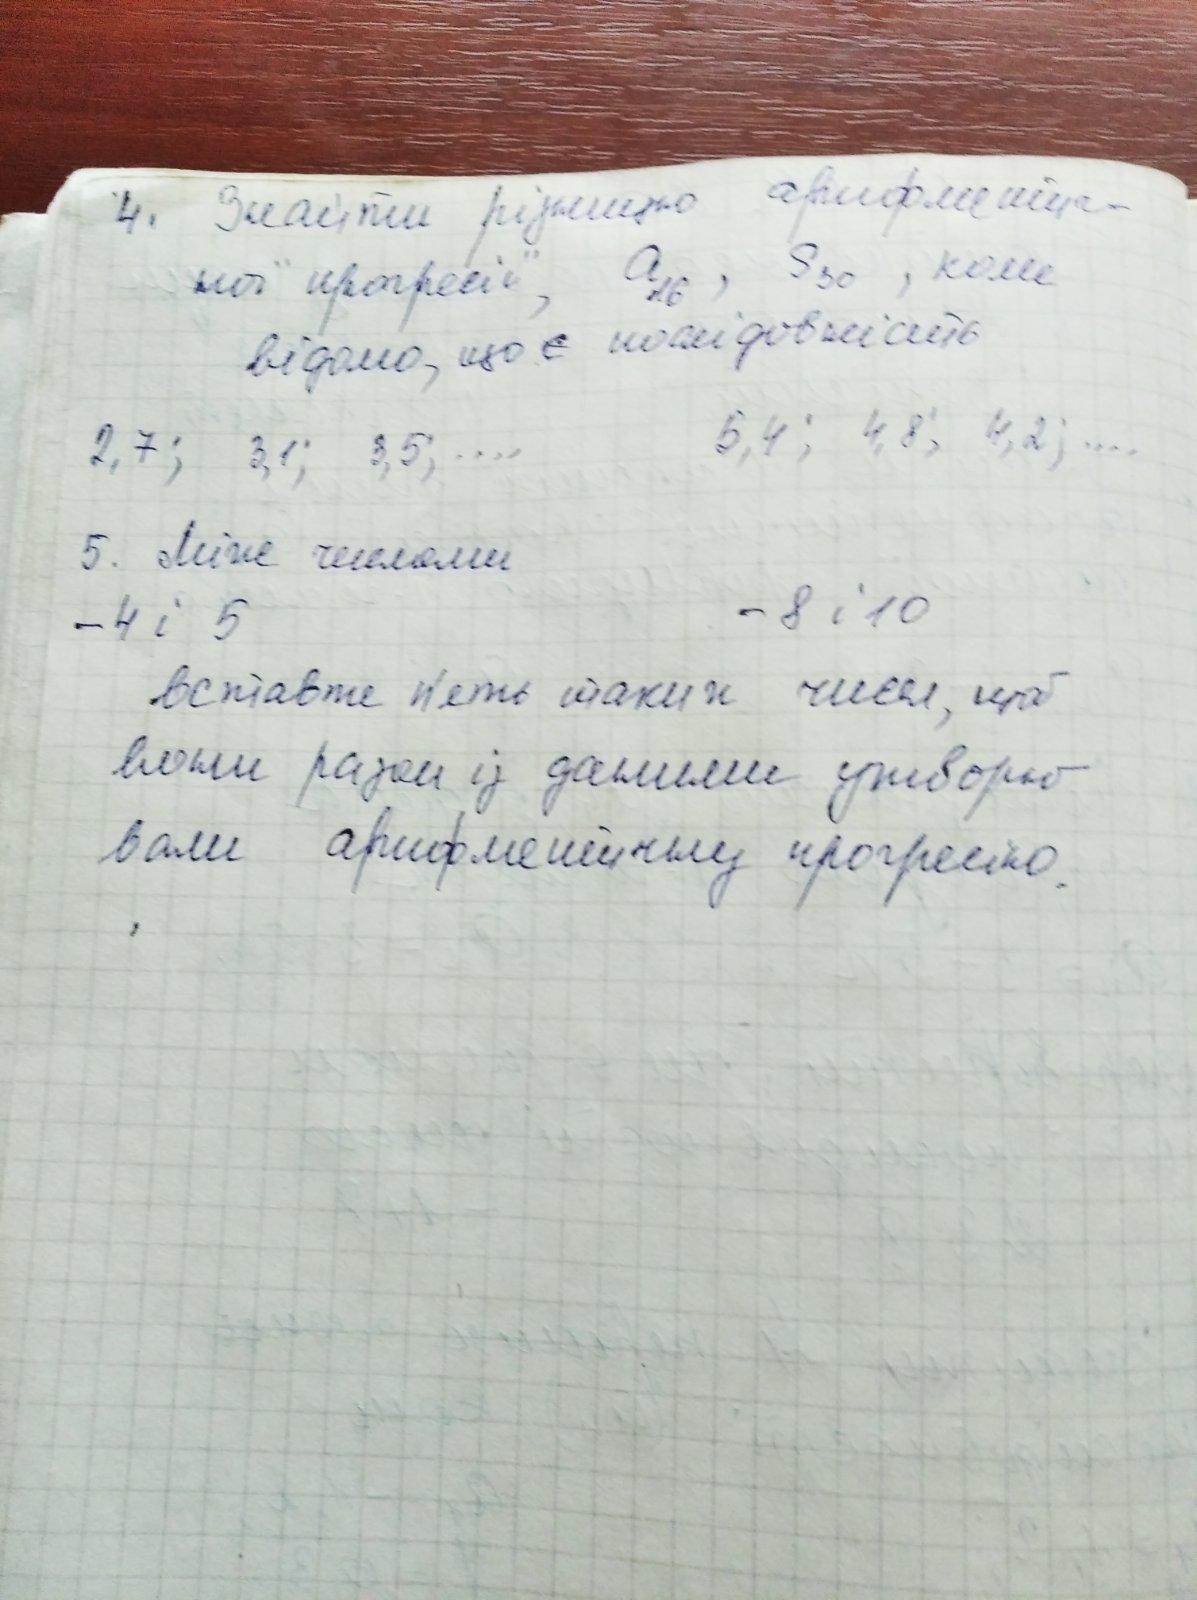 4. Знайти різницю арифметич-
ної прогресії, a₁₆, S₃₀, коли
відомо, що є послідовність
2,7; 3,1; 3,5; .... 5,4; 4,8; 4,2; ....
5. Між числами
-4 і 5 -8 і 10
вставте п'ять таких чисел, щоб
вони разом із даними утворю
вали арифметичну прогресію.